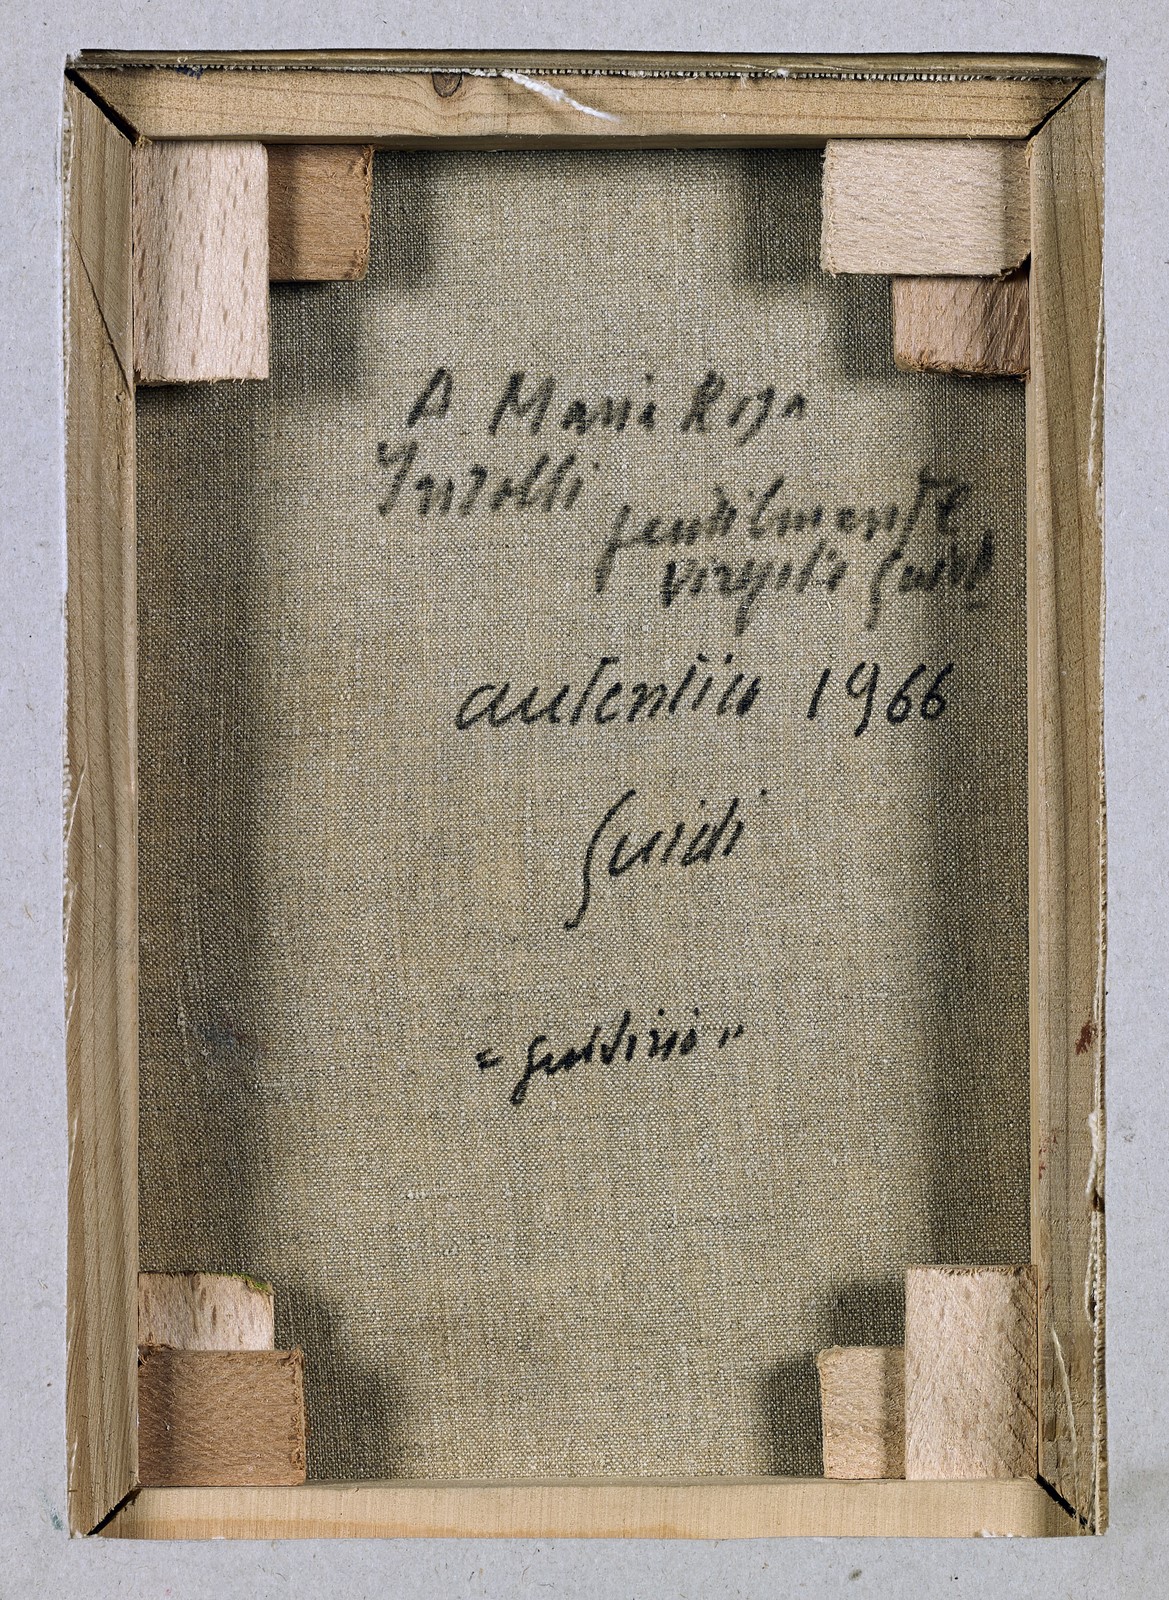 A Maria Rosa
Inzolli
gentilmente
Virgilio Guidi
autentico 1966
Guidi
"Giudizio"